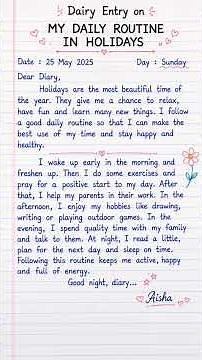 Dairy Entry on
MY DAILY ROUTINE
IN HOLIDAYS
Date : 25 May 2025 Day : Sunday
Dear Diary,
Holidays are the most beautiful time of
the year. They give me a chance to relax,
have fun and learn many new things. I follow
a good daily routine so that I can make the
best use of my time and stay happy and
healthy.
I wake up early in the morning and
freshen up. Then I do some exercises and
pray for a positive start to my day. After
that, I help my parents in their work. In the
afternoon, I enjoy my hobbies like drawing,
writing or playing outdoor games. In the
evening, I spend quality time with my family
and talk to them. At night, I read a little,
plan for the next day and sleep on time.
Following this routine keeps me active, happy
and full of energy.
Good night, diary...
Aisha